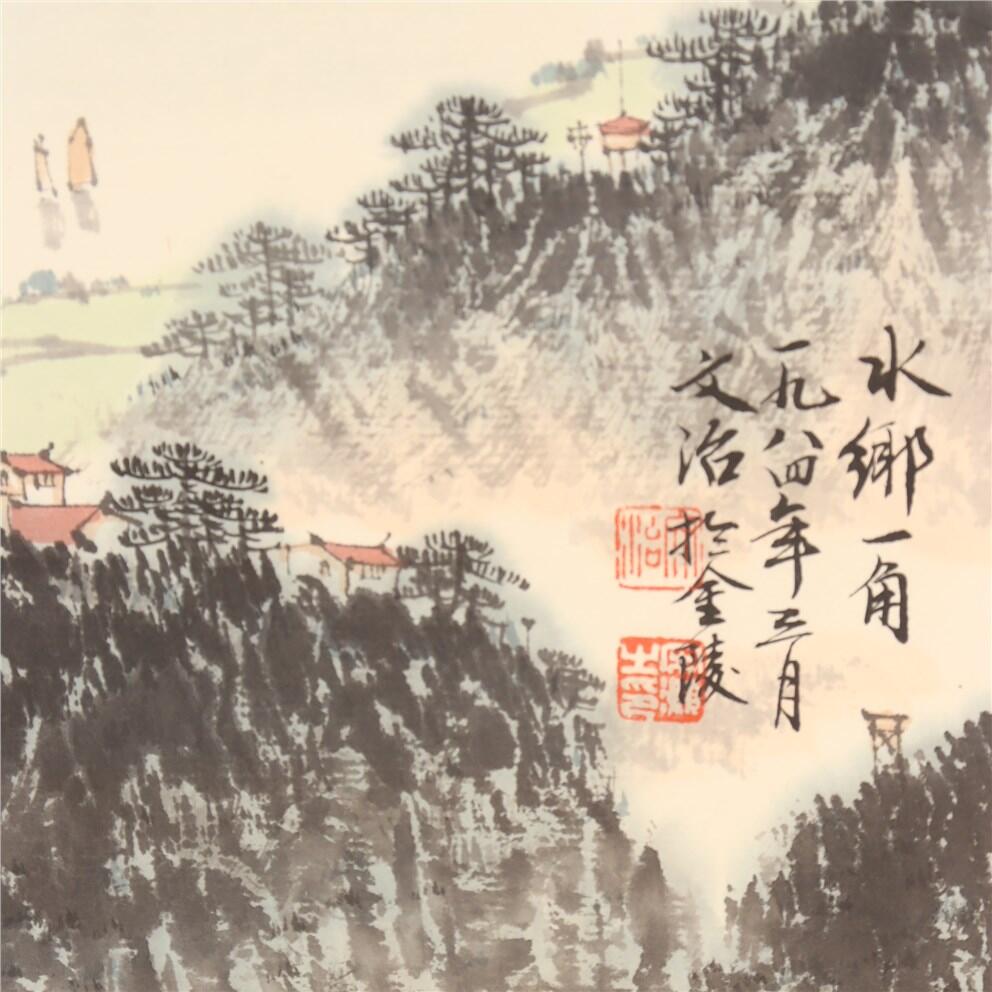 水鄉一角
一九八四年三月
文治於金陵